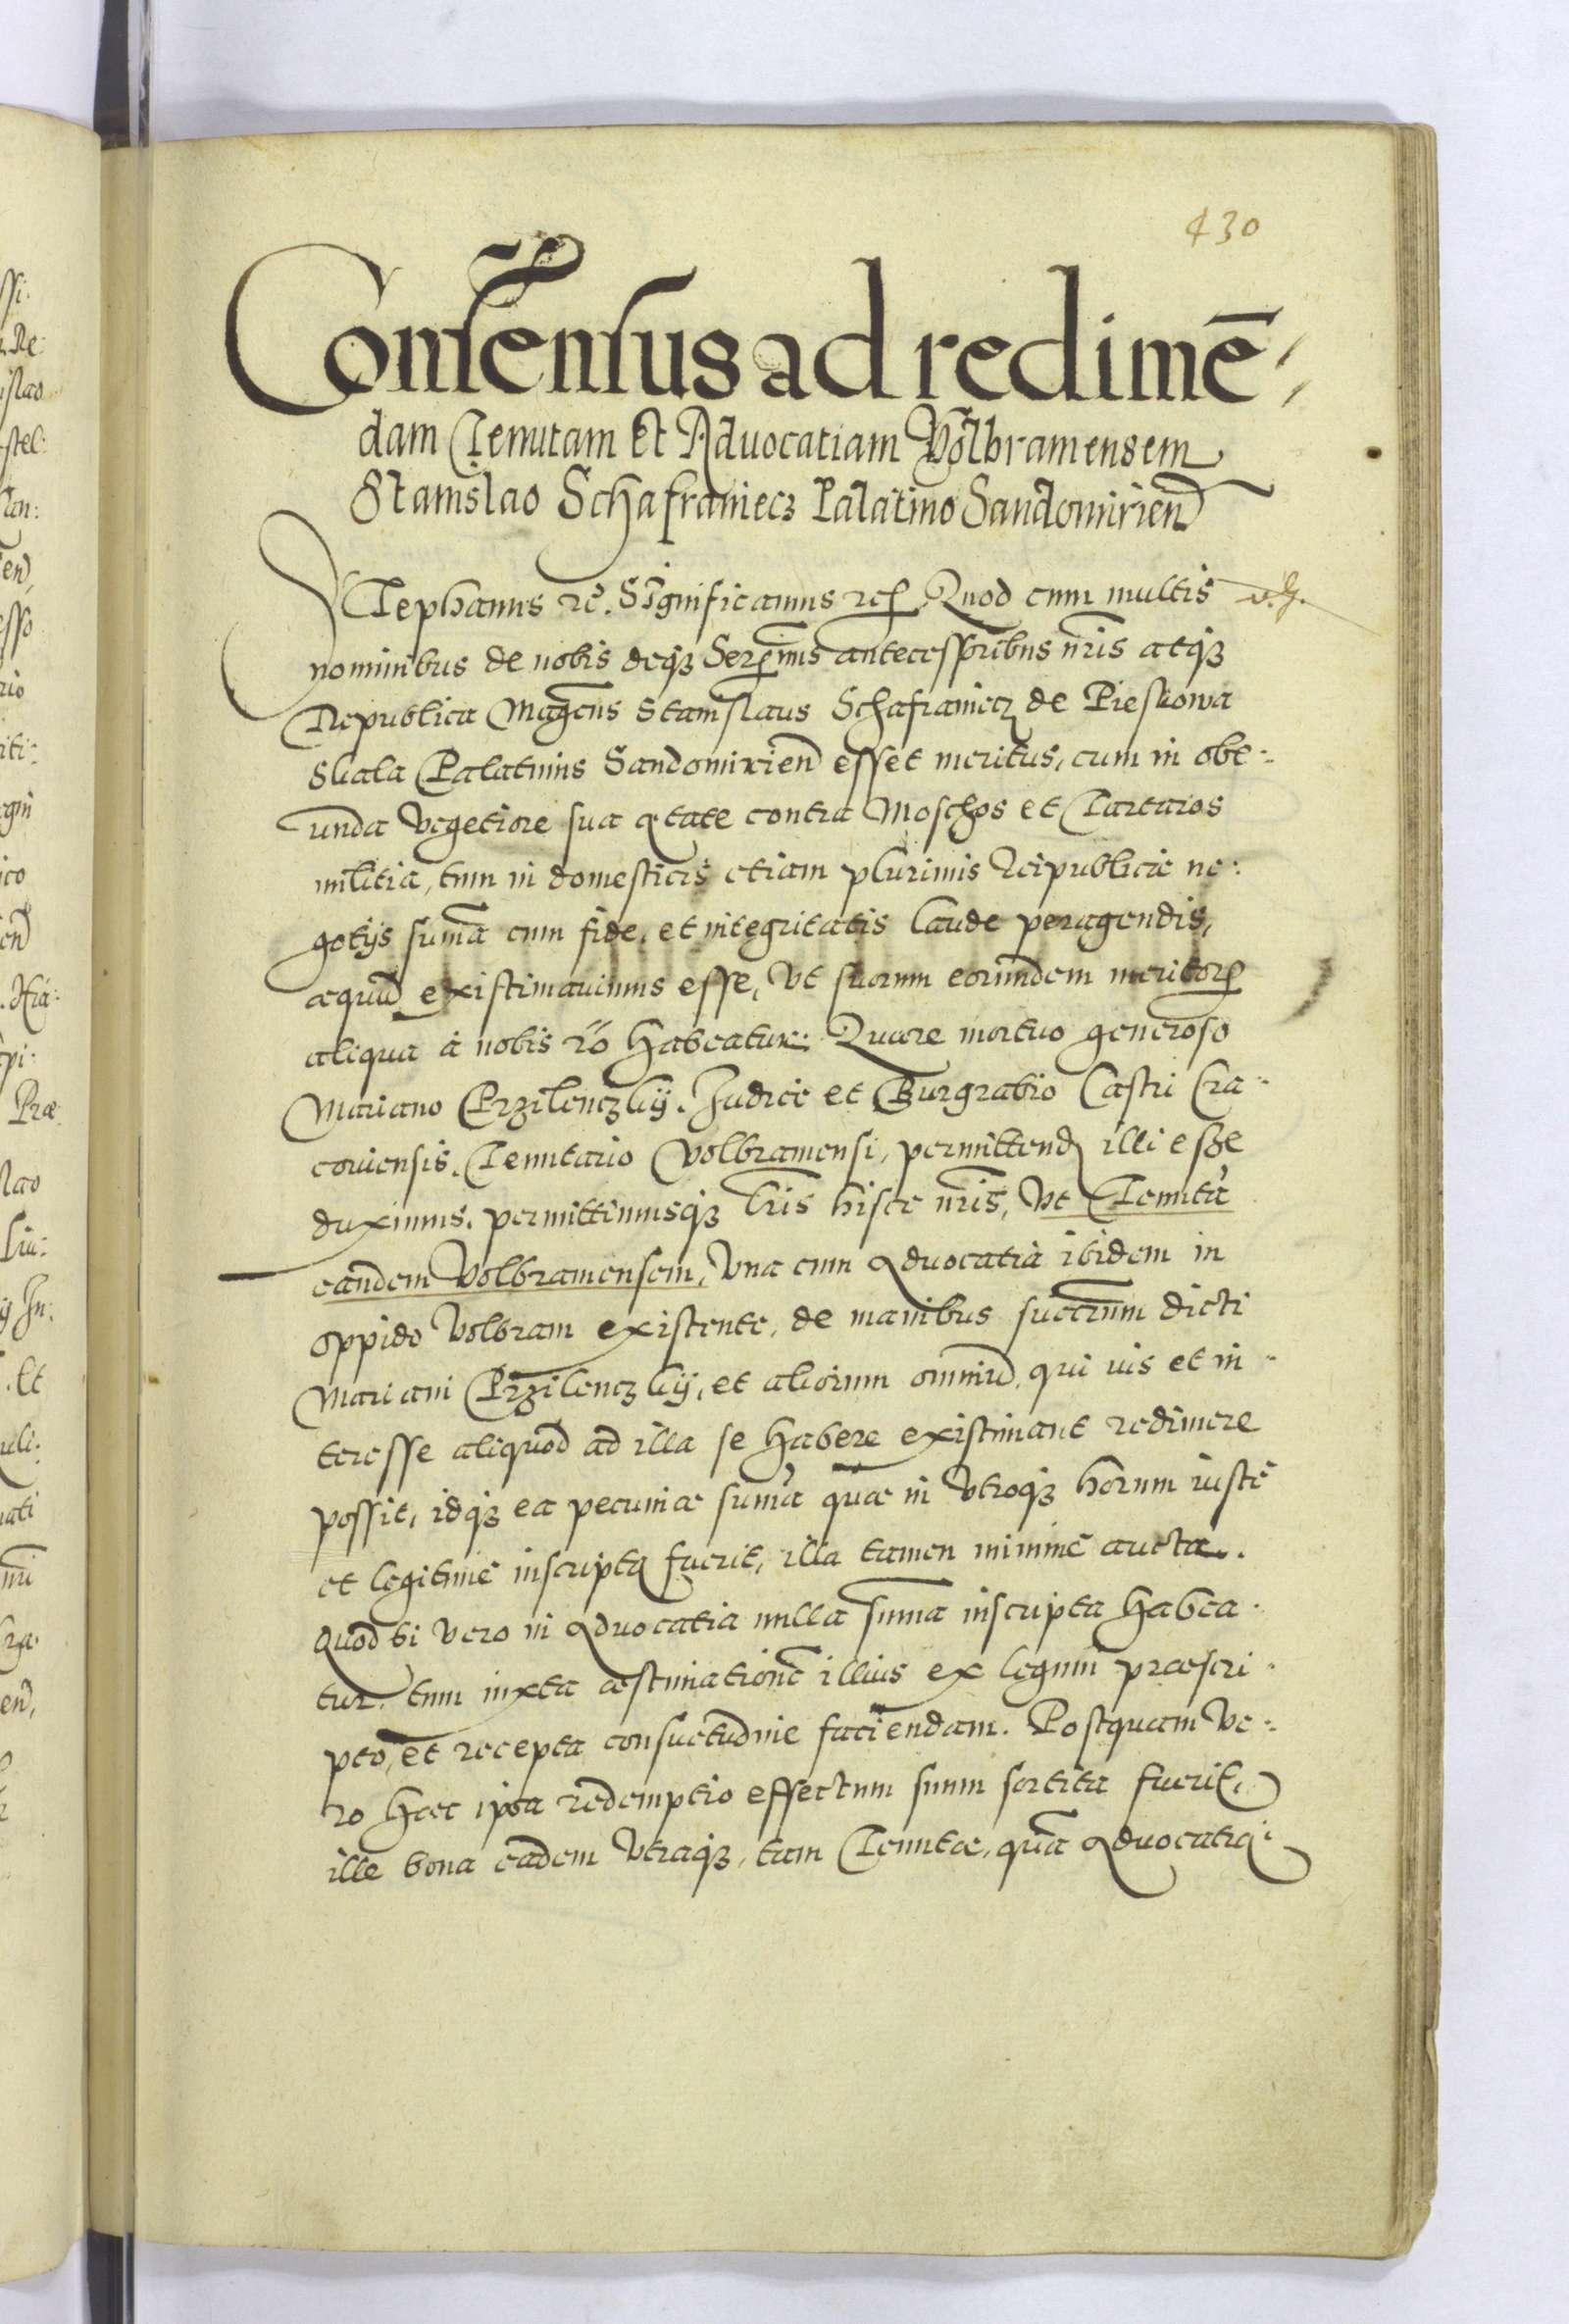 430
Consensus ad redimē-
dam Tenutam Et Aduocatiam Volbramensem
Stanislao Schafraniecz Palatino Sandomirien
Stephanus etc̄. Significamus etc. Quod cum multis
nominibus de nobis deq3 Serenmis antecessoribus nris atq3
Republica Magcus Stanislaus Schafraniecz de Pieskowa
Skala Palatinus Sandomirien esset meritus, cum in obe-
unda Vegetiore sua ętate contra Moschos et Tartaros
militia, tum in domesticis etiam plurimis Reipublicæ ne-
gotijs summa cum fide, et integritatis laude peragendis,
æquū existimauimus esse, Vt suorum eorundem meritor
aliqua à nobis rō habeatur. Quare mortuo generoso
Mariano Przilenczkij. Judice et Burgrabio Castri Cra-
couiensis. Tenutario Volbramensi, permittend illi esse
duximus. permittimusq3 lris hisce nris, Vt Tenutā
eandem Volbramensem, Vna cum Aduocatia ibidem in
oppido Volbram existente, de manibus succrum dicti
Mariani Przilenczkij, et aliorum omniū, qui ius et in-
teresse aliquod ad illa se habere existimant redimere
possit, idq3 ea pecuniæ suma quæ in Vtroq3 horum iustè
et legitimè inscripta fuerit, illa tamen minimè aucta.
Quod si vero in Aduocatia nulla suma inscripta habea-
tur. tum iuxta æstimationē illius ex legum præscri-
pto, et recepta consuetudine faciendam. Postquam Ve-
ro hæc ipsa redemptio effectum suum sortita fuerit,
ille bona eadem Vtraq3, tam Tenutæ, quā Aduocatię